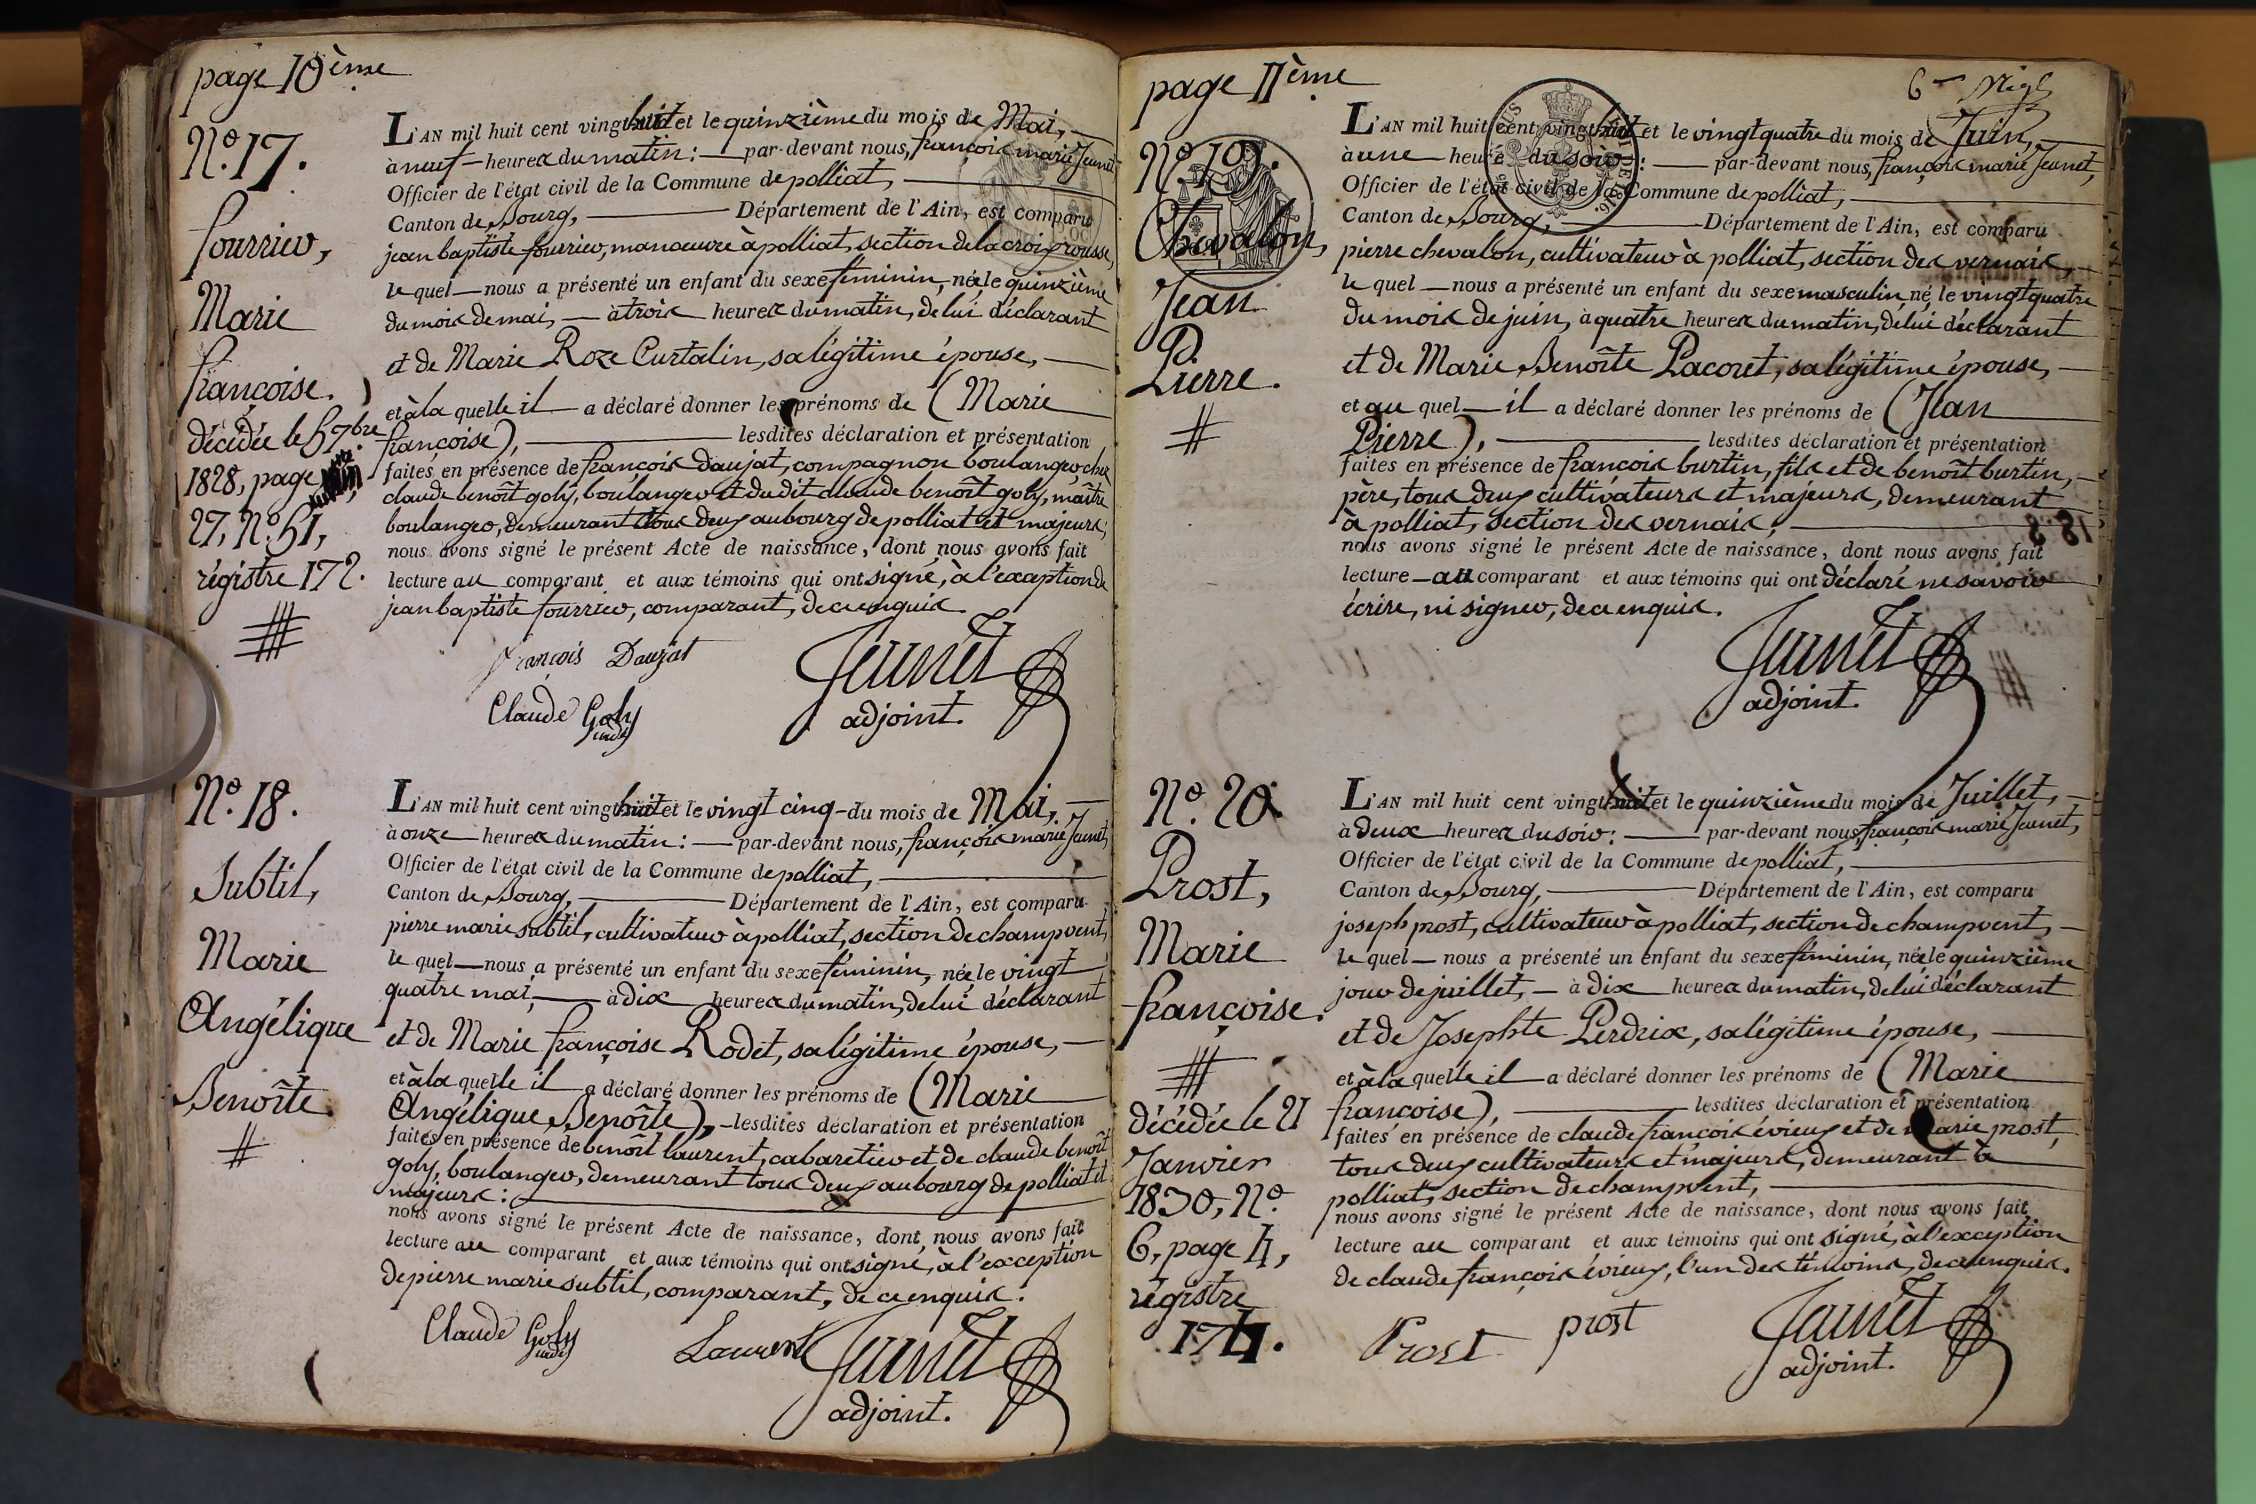 page 10ème
N.° 17.
fourrier,
Marie
françoise.
décédée le 5 7bre
1828, page
27, N.° 51,
régistre 172.
L'AN mil huit cent vingt huit et le quinzième du mois de Mai,
à neuf heures du matin : par-devant nous, françois marie Jeunet
Officier de l'état civil de la Commune de polliat,
Canton de Bourg, Département de l'Ain, est comparu
jean baptiste fourrier, manoeuvre à polliat, section de la croix rousse,
le quel nous a présenté un enfant du sexe féminin, née le quinzième
du mois de mai, à trois heures du matin, de lui déclarant
et de Marie Roze Curtalin, sa légitime épouse,
et à la quelle il a déclaré donner les prénoms de (Marie
françoise), lesdites déclaration et présentation
faites en présence de françois daujat, compagnon boulanger chez
claude benoît goly, boulanger et dudit claude benoît goly, maître
boulanger, demeurant tous deux au bourg de polliat et majeurs,
nous avons signé le présent Acte de naissance, dont nous avons fait
lecture au comparant et aux témoins qui ont signé, à l'exception de
jean baptiste fourrier, comparant, de ce enquis.
françois Daujat
Jeunet
Claude Goly
adjoint.
N.° 18.
Subtil,
Marie
Angélique
Benoîte.
L'AN mil huit cent vingt huit et le vingt cinq du mois de Mai,
à onze heures du matin : par-devant nous, françois marie Jeunet,
Officier de l'état civil de la Commune de polliat,
Canton de Bourg, Département de l'Ain, est comparu
pierre marie subtil, cultivateur à polliat, section de champvent,
le quel nous a présenté un enfant du sexe féminin, née le vingt
quatre mai, à dix heures du matin, de lui déclarant
et de Marie françoise Rodet, sa légitime épouse,
et à la quelle il a déclaré donner les prénoms de (Marie
Angélique Benoîte), lesdites déclaration et présentation
faites en présence de benoît laurent, cabaretier et de claude benoît
goly, boulanger, demeurant tous deux au bourg de polliat et
majeurs :
nous avons signé le présent Acte de naissance, dont nous avons fait
lecture au comparant et aux témoins qui ont signé, à l'exception
de pierre marie subtil, comparant, de ce enquis.
Claude Goly
Laurent
Jeunet
adjoint.
page 11ème
6
N.° 19.
Chevalon,
Jean
Pierre.
L'AN mil huit cent vingt huit et le vingt quatre du mois de Juin,
à une heure du soir : par-devant nous, françois marie Jeunet,
Officier de l'état civil de la Commune de polliat,
Canton de Bourg, Département de l'Ain, est comparu
pierre chevalon, cultivateur à polliat, section des vernais,
le quel nous a présenté un enfant du sexe masculin né, le vingt quatre
du mois de juin, à quatre heures du matin, de lui déclarant
et de Marie Benoîte Pacoret, sa légitime épouse,
et au quel il a déclaré donner les prénoms de (Jean
Pierre), lesdites déclaration et présentation
faites en présence de françois burtin, fils et de benoît burtin,
père, tous deux cultivateurs et majeurs, demeurant
à polliat, section des vernais,
nous avons signé le présent Acte de naissance, dont nous avons fait
lecture au comparant et aux témoins qui ont déclaré ne savoir
écrire, ni signer, de ce enquis.
Jeunet
adjoint.
N.° 20.
Prost,
Marie
françoise.
décédée le 21
Janvier
1830, N.°
6, page 4,
régistre
174.
L'AN mil huit cent vingt huit et le quinzième du mois de Juillet,
à deux heures du soir : par-devant nous, françois marie Jeunet,
Officier de l'état civil de la Commune de polliat,
Canton de Bourg, Département de l'Ain, est comparu
joseph prost, cultivateur à polliat, section de champvent,
le quel nous a présenté un enfant du sexe féminin, née le quinzième
jour de juillet, à dix heures du matin, de lui déclarant
et de Josephte Perdrix, sa légitime épouse,
et à la quelle il a déclaré donner les prénoms de (Marie
françoise), lesdites déclaration et présentation
faites en présence de claude françois évieux et de marie prost,
tous deux cultivateurs et majeurs, demeurant à
polliat, section de champvent,
nous avons signé le présent Acte de naissance, dont nous avons fait
lecture au comparant et aux témoins qui ont signé, à l'exception
de claude françois évieux, l'un des témoins, de ce enquis.
Prost
prost
Jeunet
adjoint.